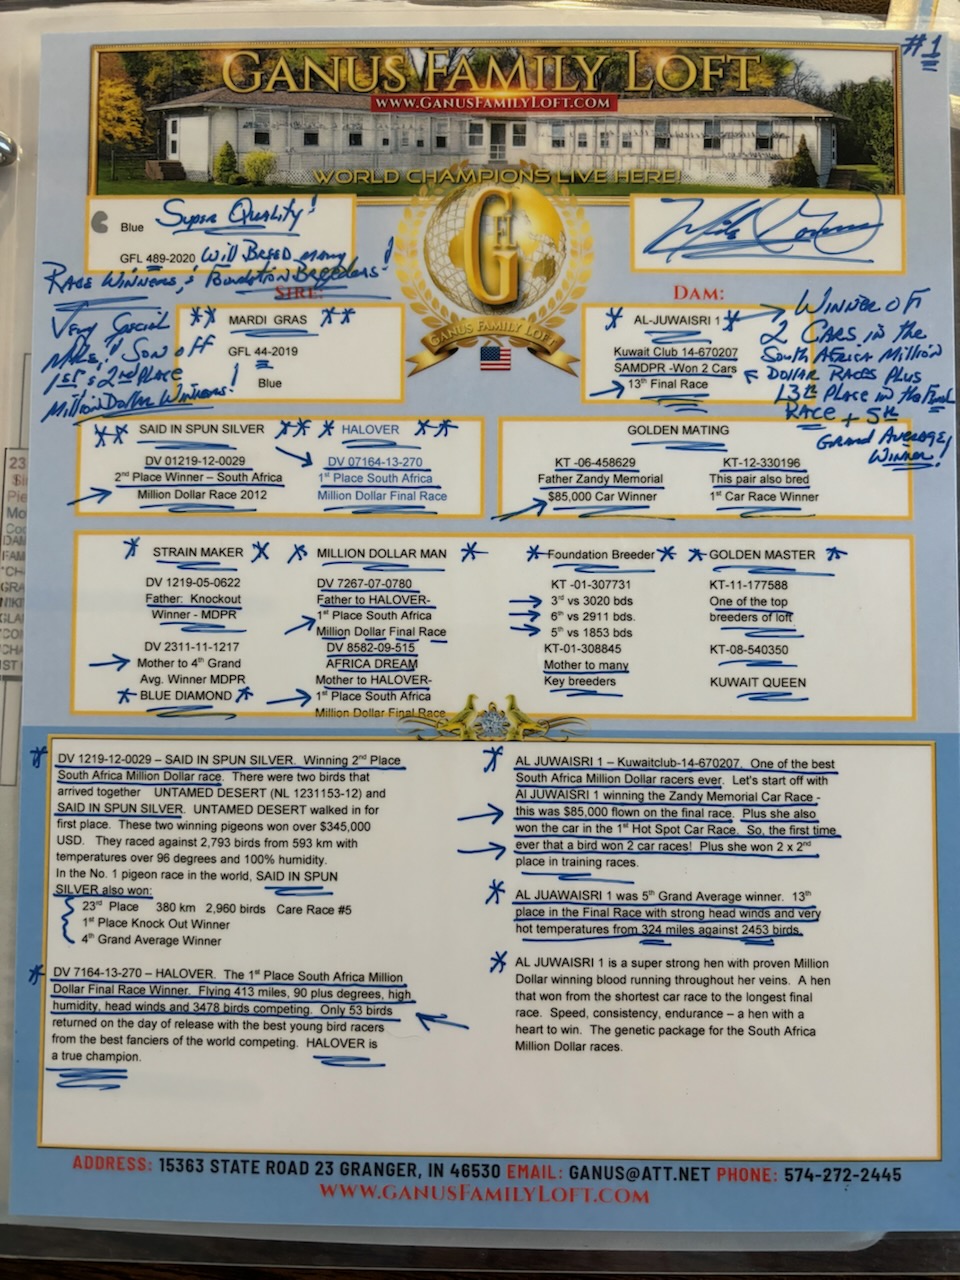 #1
GANUS FAMILY LOFT
WWW.GANUSFAMILYLOFT.COM
WORLD CHAMPIONS LIVE HERE!
Blue Super Quality!
GFL 489-2020 Will Breed many
Race Winners, & Foundation Breeders!
Very Special
Male! Son off
1st & 2nd Place
Million Dollar Winners!
G
GANUS FAMILY LOFT
SIRE:
MARDI GRAS
GFL 44-2019
Blue
DAM:
AL-JUWAISRI 1
Kuwait Club 14-670207
SAMDPR -Won 2 Cars
13th Final Race
Winner of
2 Cars in the
South Africa Million
Dollar Races Plus
13th Place in the Final
Race + 5th
Grand Average
Winner!
SAID IN SPUN SILVER
DV 01219-12-0029
2nd Place Winner – South Africa
Million Dollar Race 2012
HALOVER
DV 07164-13-270
1st Place South Africa
Million Dollar Final Race
GOLDEN MATING
KT -06-458629
Father Zandy Memorial
$85,000 Car Winner
KT-12-330196
This pair also bred
1st Car Race Winner
STRAIN MAKER
DV 1219-05-0622
Father: Knockout
Winner - MDPR
DV 2311-11-1217
Mother to 4th Grand
Avg. Winner MDPR
BLUE DIAMOND
MILLION DOLLAR MAN
DV 7267-07-0780
Father to HALOVER-
1st Place South Africa
Million Dollar Final Race
DV 8582-09-515
AFRICA DREAM
Mother to HALOVER-
1st Place South Africa
Million Dollar Final Race
Foundation Breeder
KT -01-307731
3rd vs 3020 bds
6th vs 2911 bds.
5th vs 1853 bds
KT-01-308845
Mother to many
Key breeders
GOLDEN MASTER
KT-11-177588
One of the top
breeders of loft
KT-08-540350
KUWAIT QUEEN
DV 1219-12-0029 – SAID IN SPUN SILVER. Winning 2nd Place
South Africa Million Dollar race. There were two birds that
arrived together UNTAMED DESERT (NL 1231153-12) and
SAID IN SPUN SILVER. UNTAMED DESERT walked in for
first place. These two winning pigeons won over $345,000
USD. They raced against 2,793 birds from 593 km with
temperatures over 96 degrees and 100% humidity.
In the No. 1 pigeon race in the world, SAID IN SPUN
SILVER also won:
23rd Place 380 km 2,960 birds Care Race #5
1st Place Knock Out Winner
4th Grand Average Winner
DV 7164-13-270 – HALOVER. The 1st Place South Africa Million
Dollar Final Race Winner. Flying 413 miles, 90 plus degrees, high
humidity, head winds and 3478 birds competing. Only 53 birds
returned on the day of release with the best young bird racers
from the best fanciers of the world competing. HALOVER is
a true champion.
AL JUWAISRI 1 – Kuwaitclub-14-670207. One of the best
South Africa Million Dollar racers ever. Let's start off with
Al JUWAISRI 1 winning the Zandy Memorial Car Race -
this was $85,000 flown on the final race. Plus she also
won the car in the 1st Hot Spot Car Race. So, the first time
ever that a bird won 2 car races! Plus she won 2 x 2nd
place in training races.
AL JUAWAISRI 1 was 5th Grand Average winner. 13th
place in the Final Race with strong head winds and very
hot temperatures from 324 miles against 2453 birds.
AL JUWAISRI 1 is a super strong hen with proven Million
Dollar winning blood running throughout her veins. A hen
that won from the shortest car race to the longest final
race. Speed, consistency, endurance – a hen with a
heart to win. The genetic package for the South Africa
Million Dollar races.
ADDRESS: 15363 STATE ROAD 23 GRANGER, IN 46530 EMAIL: GANUS@ATT.NET PHONE: 574-272-2445
WWW.GANUSFAMILYLOFT.COM